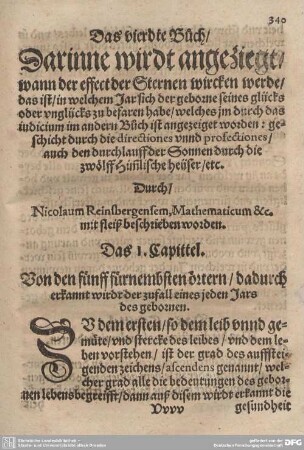 340
Das vierdte Büch/
Darinne wirdt angezeigt/
wann der effect der Sternen wircken werde/
das ist/ in welchem Jar sich der geborne seines glücks
oder vnglücks zu befaren habe/ welches jm durch das
iudicium im andern Büch ist angezeiget worden: ge-
schicht durch die directiones vnnd profectiones/
auch den durchlauff der Sonnen durch die
zwölff Him̃lische heüser/ etc.
Durch/
Nicolaum Reinsbergensem, Mathematicum &c.
mit fleiß beschrieben worden.
Das 1. Capittel.
Von den fünff fürnembsten örtern/ dadurch
erkannt wirdt der zufall eines jeden Jars
des gebornen.
ZV dem ersten/ so dem leib vnnd ge-
müte/ vnd stercke des leibes/ vnd dem le-
ben vorstehen/ ist der grad des auffstei-
genden zeichens/ ascendens genannt/ wel-
cher grad alle die bedeutungen des gebor-
nen lebens begreifft/ dann auß disem wirdt erkannt die
Vvvv
gesundheit
DFG